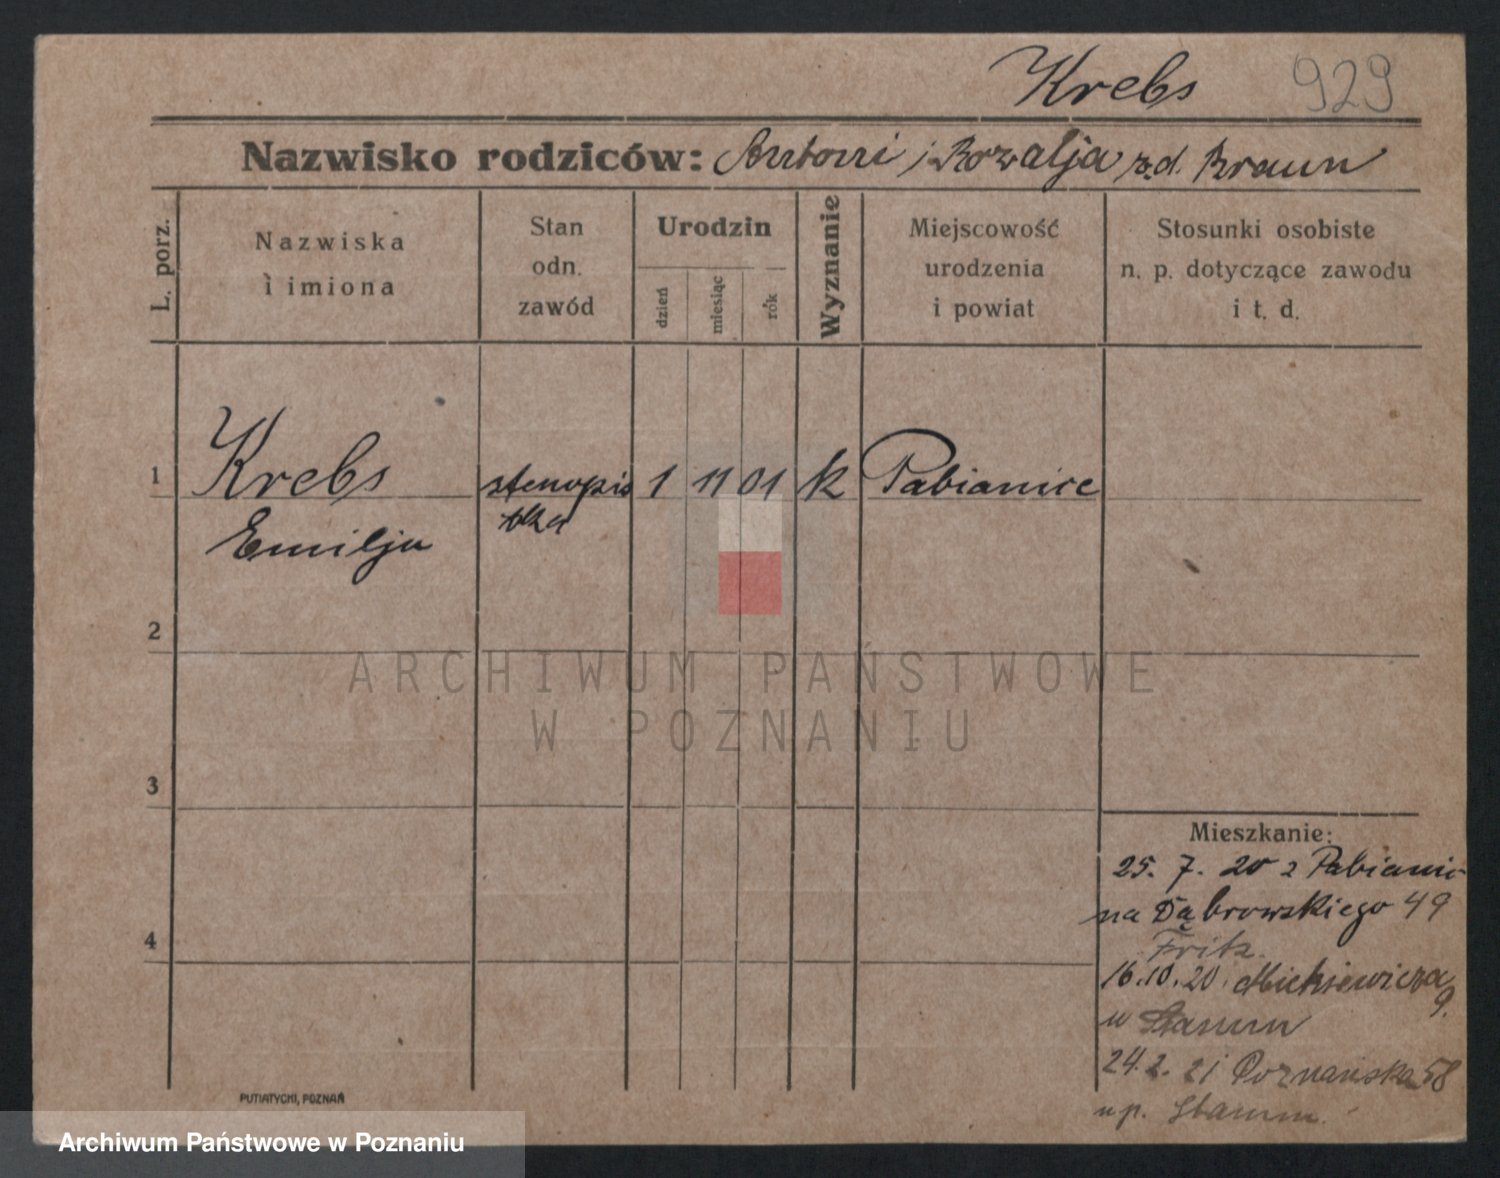 Krebs 929
Nazwisko rodziców: Antoni i Rozalja z d. Braun
L. porz.
Nazwiska
i imiona
Stan
odn.
zawód
Urodzin
dzień
miesiąc
rok
Wyznanie
Miejscowość
urodzenia
i powiat
Stosunki osobiste
n. p. dotyczące zawodu
i t. d.
1 Krebs stenopis 1 11 01 k Pabianice
Emilja tka
2
3
4
ARCHIWUM PAŃSTWOWE
W POZNANIU
Mieszkanie:
25. 7. 20 z Pabianic
na Dąbrowskiego 49
Fritz.
16.10.20. Mickiewicza 9.
u Stamm
24.2.21 Poznańska 58
u p. Stamm
PUTIATYCKI, POZNAŃ
Archiwum Państwowe w Poznaniu